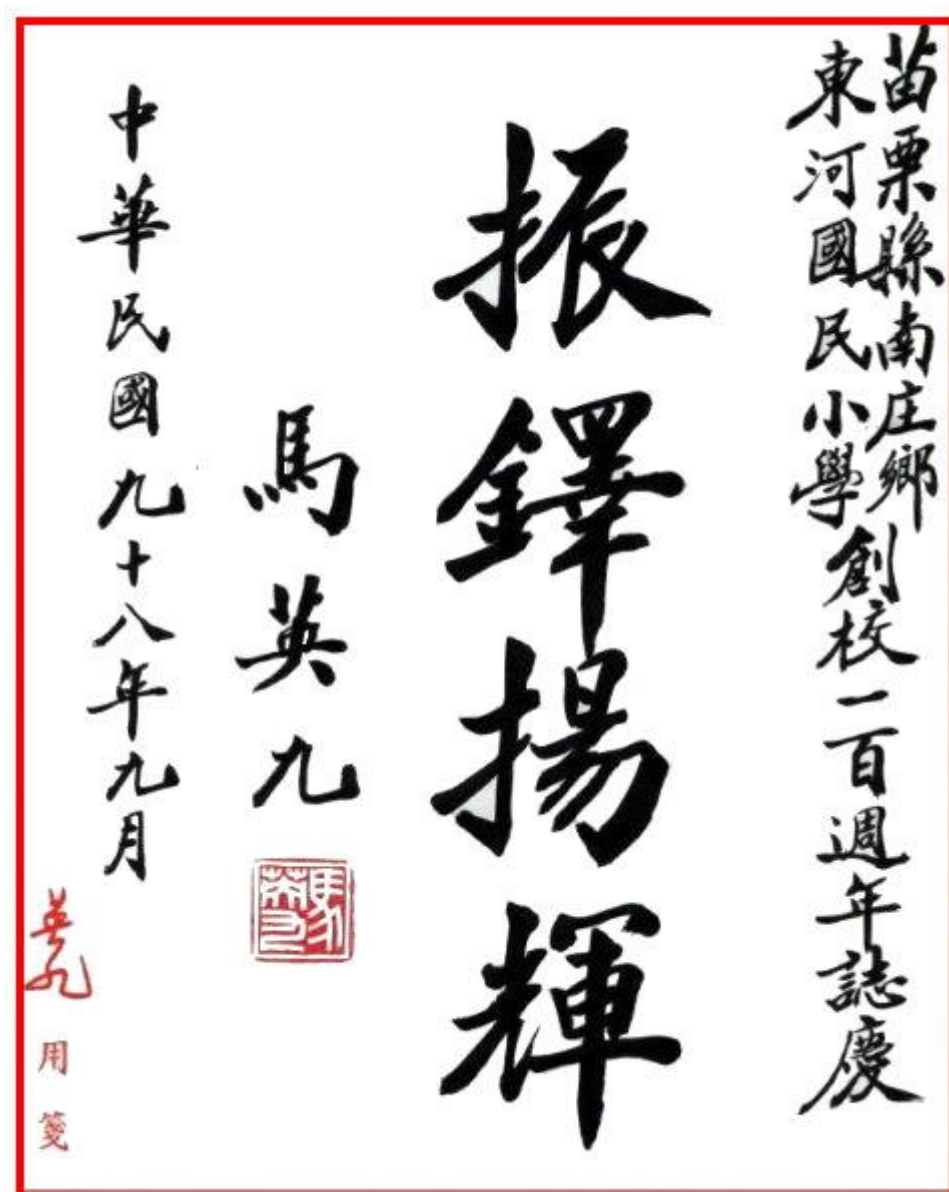 苗栗縣南庄鄉
東河國民小學
創校一百週年誌慶
振鐸揚輝
馬英九
馬英九
中華民國九十八年九月
英九
用箋